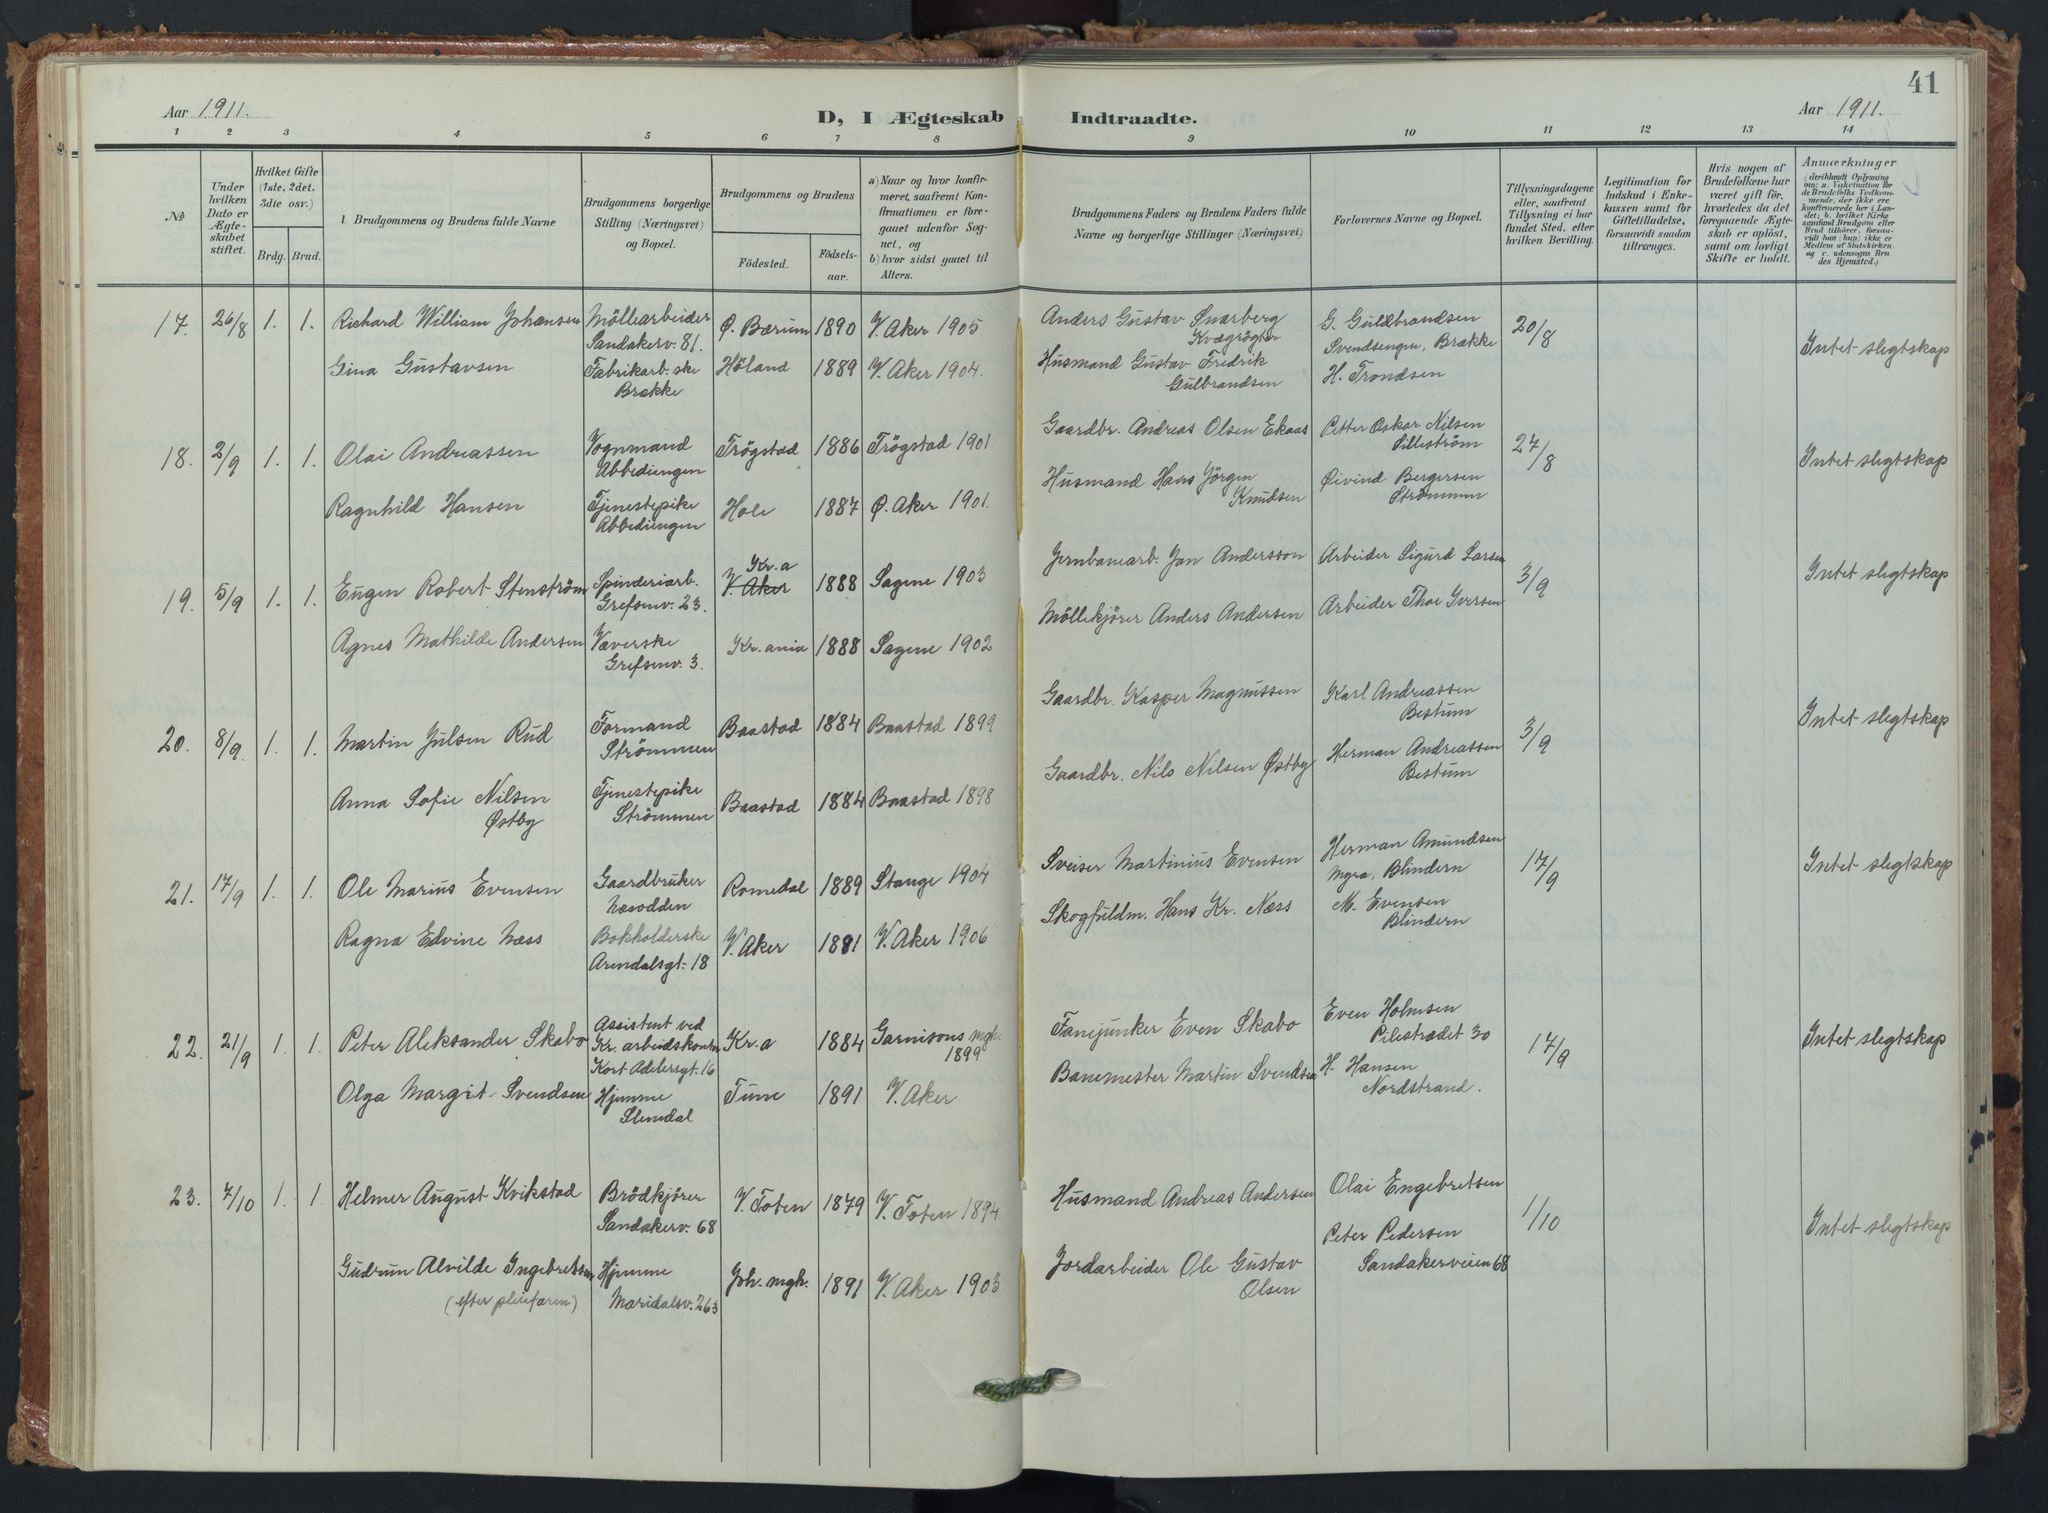 41
Aar 1911.
D, I Ægteskab Indtraadte.
Aar 1911.
1 2 3 4 5 6 7 8 9 10 11 12 13 14
No
Under hvilken Dato er Ægteskabet stiftet.
Hvilket Gifte (1ste, 2det, 3die osv.)
Brdg. Brud.
1 Brudgommens og Brudens fulde Navne
Brudgommens borgerlige Stilling (Næringsvei) og Bopæl.
Brudgommens og Brudens
Födested. Födselsaar.
a) Naar og hvor konfirmeret, saafremt Konfirmationen er foregaaet udenfor Sognet, og
b) hvor sidst gaaet til Alters.
Brudgommens Faders og Brudens Faders fulde Navne og borgerlige Stillinger (Næringsvei)
Forlovernes Navne og Bopæl.
Tillysningsdagene eller, saafremt Tillysning ei har fundet Sted, efter hvilken Bevilling.
Legitimation for Indskud i Enkekassen samt for Giftetilladelse, forsaavidt saadan tiltrænges.
Hvis nogen af Brudefolkene har været gift før, hvorledes da det foregaaende Ægteskab er opløst, samt om lovligt Skifte er holdt.
Anmærkninger (deriblandt Oplysning om: a. Vakcination for de Brudefolks Vedkommende, der ikke ere konfirmerede her i Landet; b. hvilket Kirkesamfund Brudgom eller Brud tilhörer, forsaavidt han (hun) ikke er Medlem af Statskirken, og c. udensogns Brudes Hjemsted.)
17. 26/8 1. 1. Richard William Johansen Möllearbeider Sandakerv. 81. Ø. Bærum 1890 V. Aker 1905 Anders Gustav Snarberg Kvægrögter G. Guldbrandsen Svendsengen, Brække 20/8 Intet slegtskap
Gina Gustavsen Fabrikarb.ske Brække Höland 1889 V. Aker 1904. Husmand Gustav Fredrik Gulbrandsen H. Trondsen
18. 2/9 1. 1. Olai Andreassen Vognmand Abbediengen Trögstad 1886 Trögstad 1901 Gaardbr. Andreas Olsen Ekaas Petter Oskar Nilsen Lilleström 27/8 Intet slegtskap
Ragnhild Hansen Tjenestepike Abbediengen Hole 1887 Ø. Aker 1901. Husmand Hans Jörgen Knudsen Øivind Bergersen Strömmen
19. 5/9 1. 1. Eugen Robert Stenström Spinderiarb. Grefsenv. 23. Kr.a V. Aker 1888 Sagene 1903 Jernbanearb. Jan Andersson Arbeider Sigurd Larsen 3/9 Intet slegtskap
Agnes Mathilde Andersen Væverske Grefsenv. 3. Kr.ania 1888 Sagene 1902 Möllekjörer Anders Andersen Arbeider Thor Iversen
20. 8/9. 1. 1. Martin Julsen Rud Formand Strömmen Baastad 1884 Baastad 1899 Gaardbr. Kasper Magnussen Karl Andreassen Bestum 3/9 Intet slegtskap
Anna Sofie Nilsen Østby Tjenestepike Strömmen Baastad 1884 Baastad 1898 Gaardbr. Nils Nilsen Østby Herman Andreassen Bestum
21. 17/9 1. 1. Ole Marius Evensen Gaardbruker Næsodden Romedal 1889 Stange 1904 Sveiser Martinius Evensen Herman Amundsen Myra, Blindern 17/9 Intet slegtskap
Ragna Edvine Næss Bokholderske Arendalsgt. 18 V. Aker 1881 V. Aker 1906 Skogfuldm. Hans Kr. Næss M. Evensen Blindern
22. 21/9 1. 1. Peter Aleksander Skabo Assistent ved Kr. arbeidskontor Kort Adelersgt. 16 Kr.a 1884 Garnisons mgh. 1899 Fanejunker Even Skabo Even Holmsen Pilestrædet 30 17/9 Intet slegtskap
Olga Margit Svendsen Hjemme Slemdal Tune 1891 V. Aker Banemester Martin Svendsen H. Hansen Nordstrand.
23. 7/10 1. 1. Helmer August Kvikstad Brödkjörer Sandakerv. 68 V. Toten 1879 V. Toten 1894 Husmand Andreas Andersen Olai Engebretsen 1/10 Intet slegtskap
Gudrun Alvilde Ingebretsen (efter pleiefaren) Hjemme Maridalsv. 263 Joh. mgh. 1891 V. Aker 1903 Jordarbeider Ole Gustav Olsen Peter Pedersen Sandakerveien 68